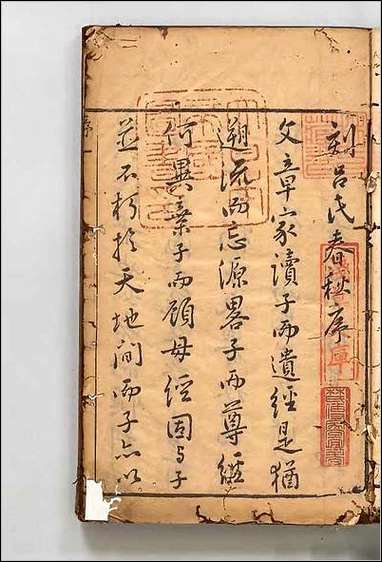 刻吕氏春秋序
文章家讀子而遺經是猶
遡流而忘源畧子而尊經
何異棄子而顧母經固与子
並不朽於天地間而子亦以
序一